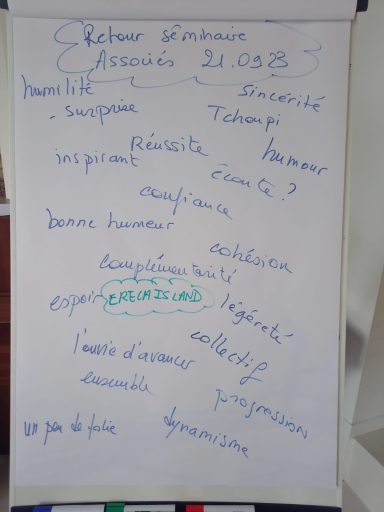 Retour séminaire
Associés 21.09.23
humilité
Sincérité
- surprise
Tchoupi
Réussite
humour
inspirant
écoute ?
confiance
bonne humeur
cohésion
complémentarité
espoir
ERECAISLAND
légéreté
collectif
l'envie d'avancer
ensemble
progression
un peu de folie
dynamisme